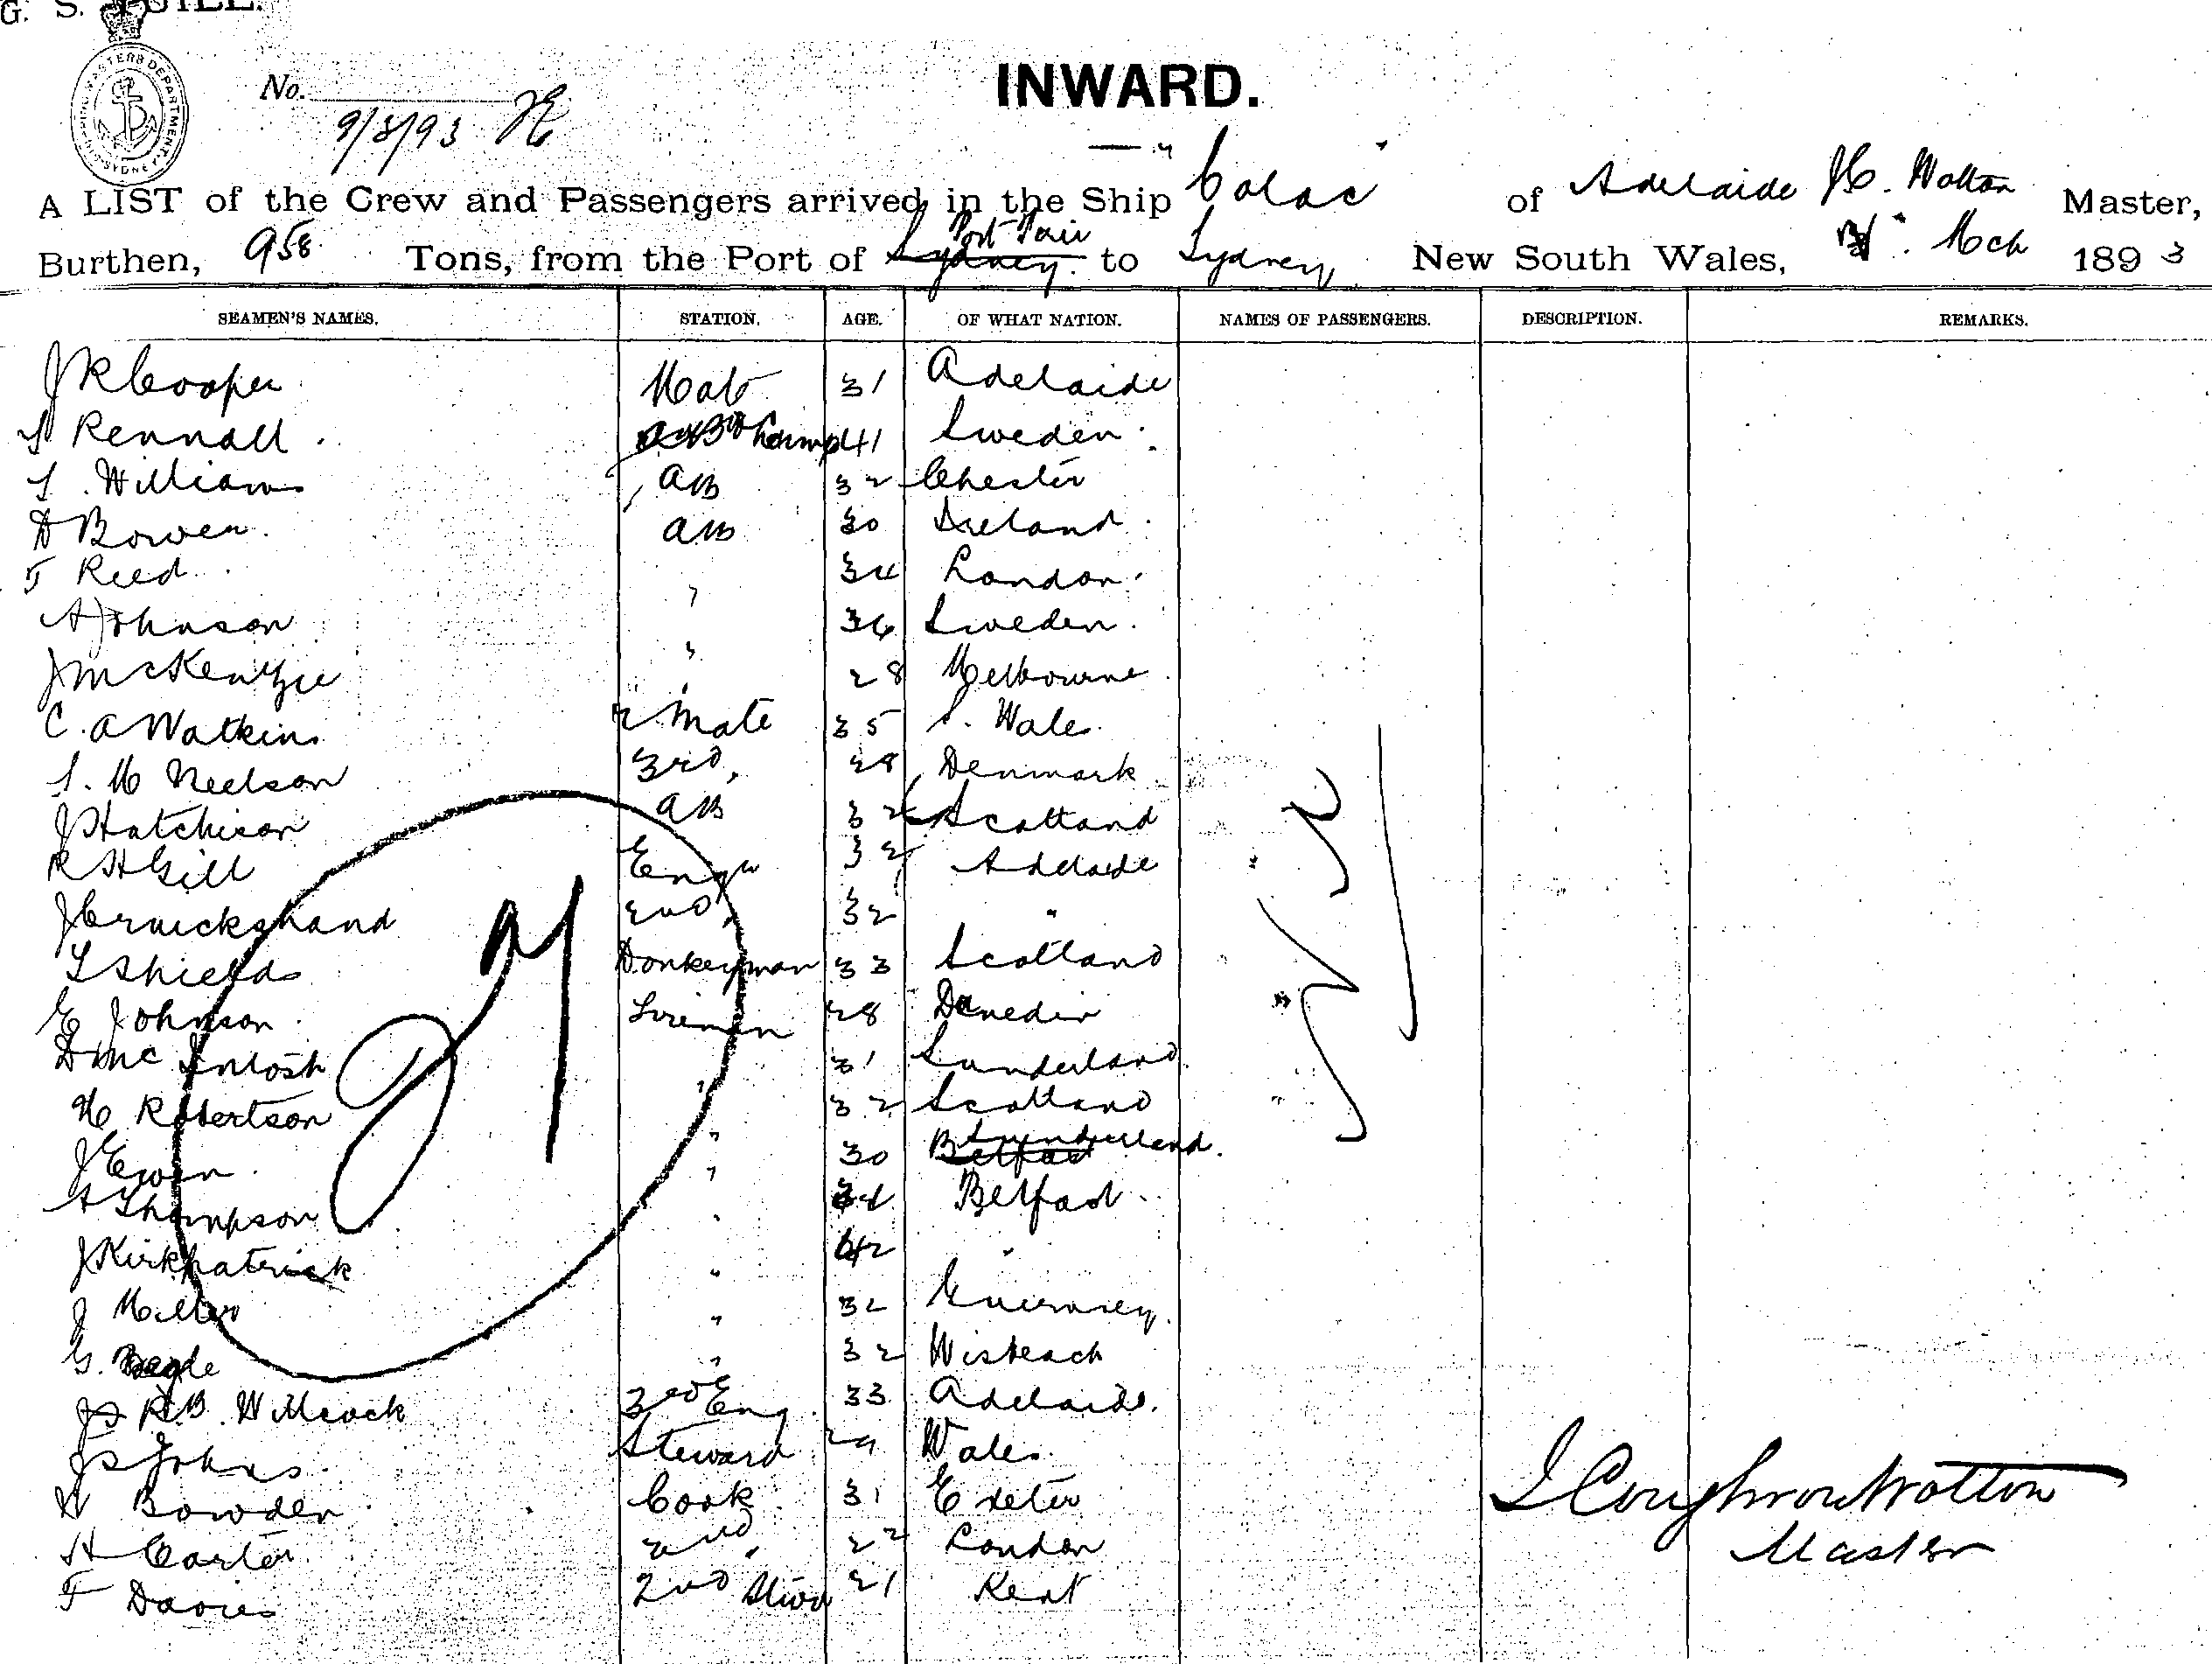 G. S. YUILL.
SHIPPING MASTERS DEPARTMENT SYDNEY
No.
9/3/93
INWARD.
A LIST of the Crew and Passengers arrived in the Ship "Colac" of Adelaide J C. Wotton Master,
Burthen, 958 Tons, from the Port of Sydney Port Pirie to Sydney, New South Wales, Mch 1893
SEAMEN'S NAMES. STATION. AGE. OF WHAT NATION. NAMES OF PASSENGERS. DESCRIPTION. REMARKS.
J R Cooper Mate 31 Adelaide
Rennall Lamp 41 Sweden
Williams AB 32 Chester
Bowen AB 30 Ireland
F Reed " 34 London
A Johnson " 36 Sweden
J McKenzie " 28 Melbourne
C. A Watkins 2 Mate 35 S. Wales
S. M Neelson 3rd " 28 Denmark
J Hutchison AB 32 Scotland
R H Gill Engr 32 Adelaide
J Cruickshand 2nd " 32 "
T Shields Donkeyman 33 Scotland
E Johnson Fireman 28 Dunedin
D McIntosh " 31 Sunderland
H Robertson " 32 Scotland
J Ewen " 30 Belfast Sunderland
A Thompson " Belfast
J Kirkpatrick " 42 "
J Miller " 32 Guernsey
G. " 32 Wisbeach
J R B. Willcock 3rd Eng 33 Adelaide
J S Johns Steward 29 Wales
W Bowden Cook 31 Exeter
H Carter 2nd " 22 London
F Davies 2nd Stwd 21 Kent
J Coughron Wotton
Master